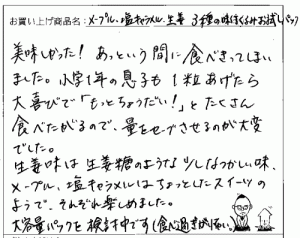 お買い上げ商品名：メープル、塩キャラメル、生姜 3種の味付くるみお試しパック
美味しかった！あっという間に食べきってしまい
ました。小学1年の息子も1粒あげたら
大喜びで「もっとちょうだい！」とたくさん
食べたがるので、量をセーブさせるのが大変
でした。
生姜味は生姜糖のような少しなつかしい味、
メープル、塩キャラメルはちょっとしたスイーツの
ようで、それぞれ楽しめました。
大容量パックを検討中です（食べ過ぎが怖い）